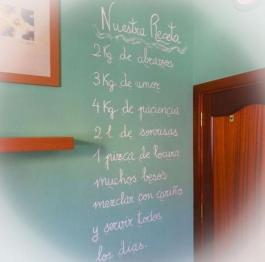 Nuestra Receta
2 Kg de abrazos
3 Kg de amor
4 Kg de paciencia
2 l de sonrisas
1 pizca de locura
muchos besos
mezclar con cariño
y servir todos
los días.